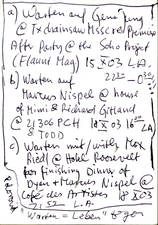 a) Warten auf Genoßing
@ Txchainsaw Misscre Premiere
After Party @ the Soho Project
(Flaunt Mag) 15 X 03 L.A.
b) Warten auf
Marcus Nispel @ house
of Mimi & Richard
@ 21306 PCH 18 X 03 16:00 LA
& TODD
c) Warten mit/with Max
Riedl @ Hotel Roosevelt
for finishing Dinner of
Dyan + Marcus Nispel @
Café des Artistes 18 X
03
21:52 L.A.
Warten = Leben